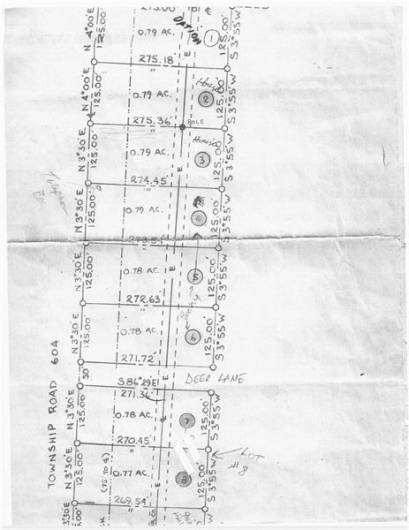 273.00'
DATION
N 4°00'E
125.00'
0.79 AC.
1
125.00'
S 3°55'W
275.18'
N 4°00'E
125.00'
0.79 AC.
House
2
125.00'
S 3°55'W
275.36'
POLE
N 3°30'E
125.00'
0.79 AC.
House
3
125.00'
S 3°55'W
274.45'
N 3°30'E
125.00'
0.79 AC.
4
125.00'
S 3°55'W
N 3°30'E
125.00'
0.78 AC.
E
5
125.00'
S 3°55'W
272.63
N 3°30'E
125.00'
0.78 AC.
6
125.00'
S 3°55'W
271.72'
50'
S 86°29'E
DEER LANE
271.36'
TOWNSHIP ROAD 604
N 3°30'E
125.00'
0.78 AC.
7
125.00'
S 3°55'W
270.45'
LOT
# 8
N 3°30'E
125.00'
0.77 AC.
8
125.00'
S 3°55'W
269.54'
3°30'E